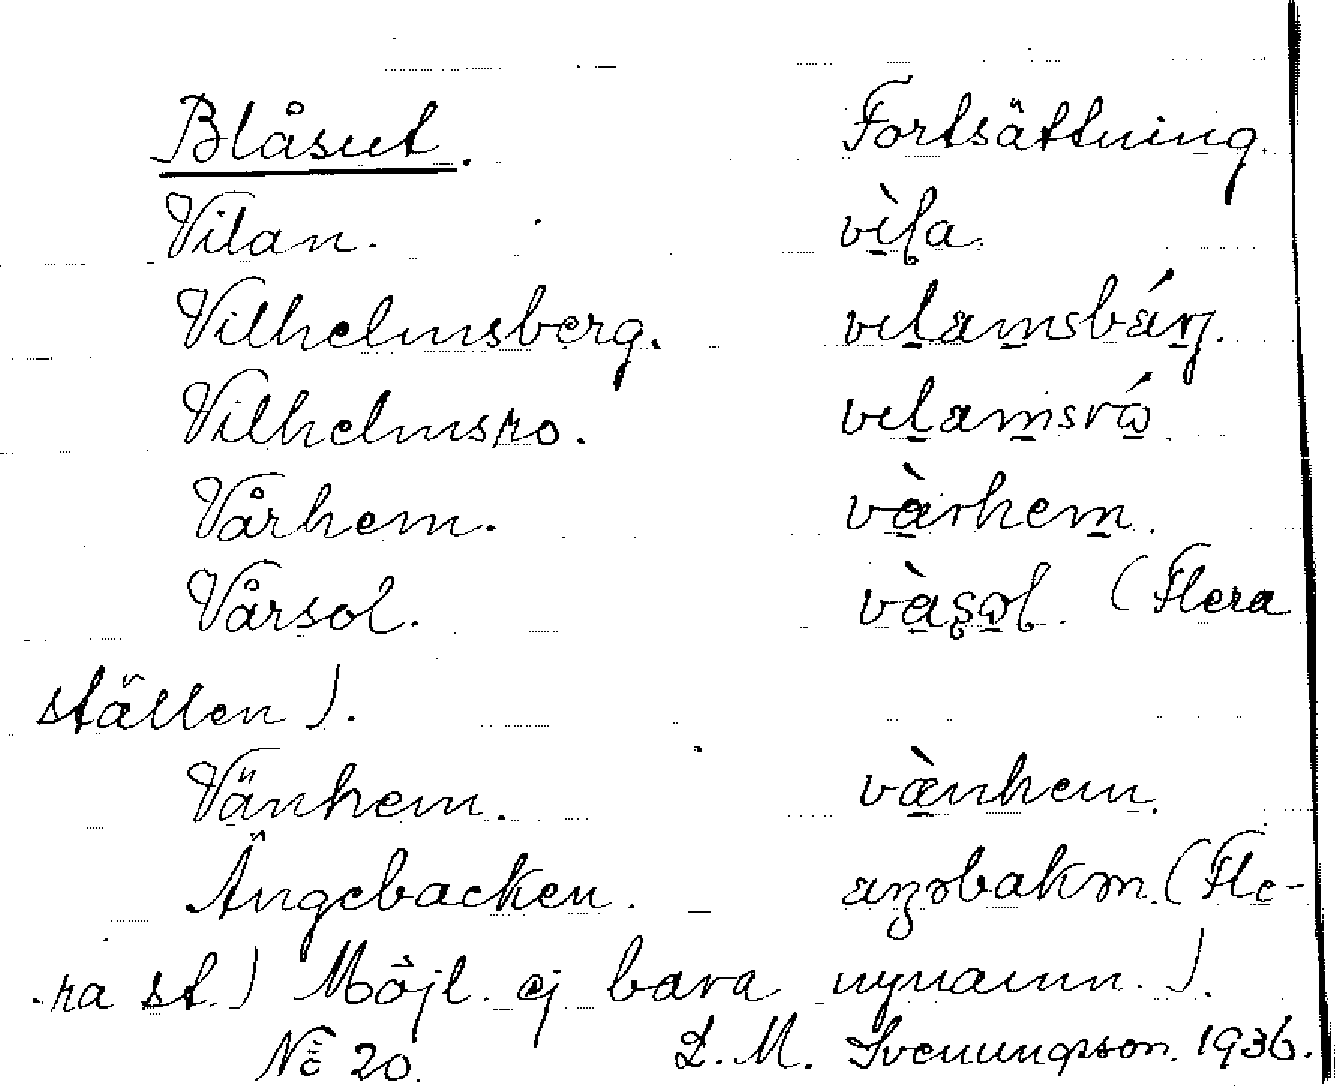 Blåsut. Fortsättning
Vilan. vìla.
Vilhelmsberg. vilamsbárj.
Vilhelmsro. vilamsró
Vårhem. vàrhem.
Vårsol. (Flera
ställen).
Vänhem. vænhem.
Ängebacken. (Fle-
ra st.) Möjl. ej bara nynamn.).
No 20. L. M. Svenungsson. 1936.